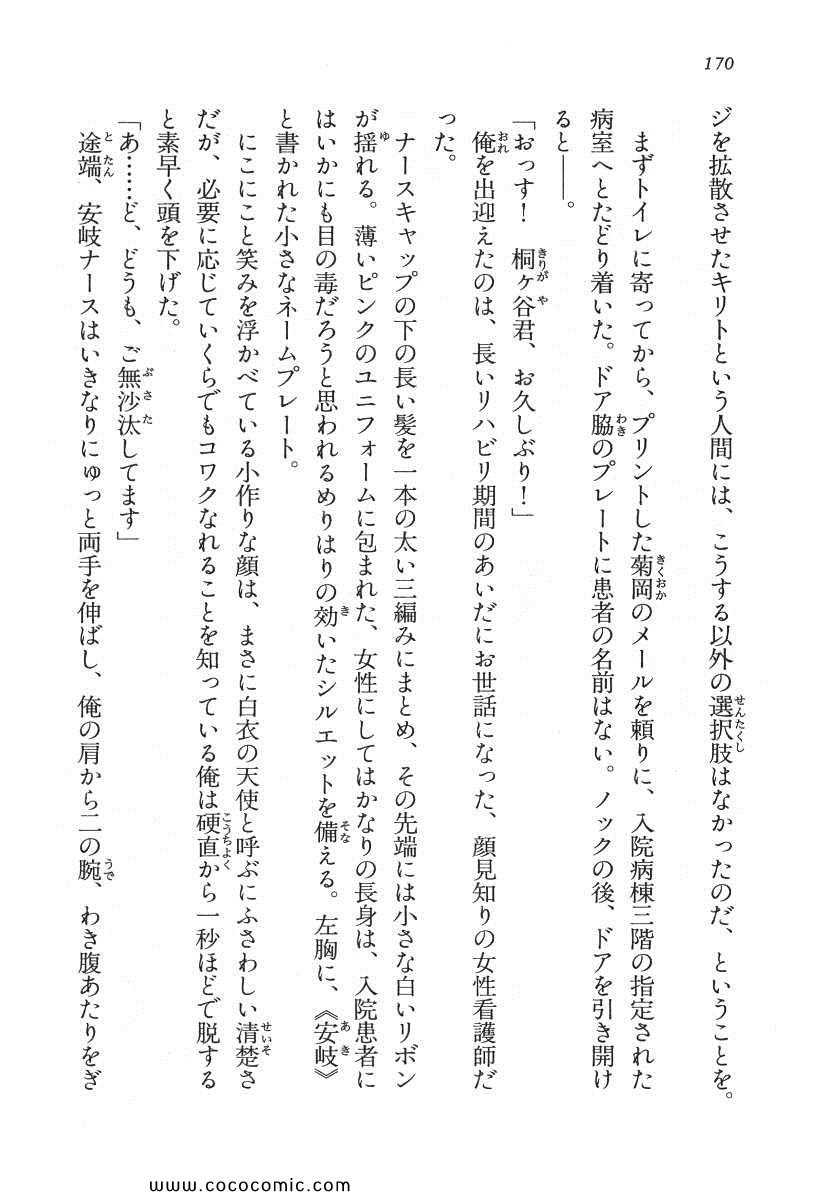 170
ジを拡散させたキリトという人間には、こうする以外の選択肢はなかったのだ、ということを。
まずトイレに寄ってから、プリントした菊岡のメールを頼りに、入院病棟三階の指定された
病室へとたどり着いた。ドア脇のプレートに患者の名前はない。ノックの後、ドアを引き開け
ると――。
「おっす！　桐ヶ谷君、お久しぶり！」
俺を出迎えたのは、長いリハビリ期間のあいだにお世話になった、顔見知りの女性看護師だ
った。
ナースキャップの下の長い髪を一本の太い三編みにまとめ、その先端には小さな白いリボン
が揺れる。薄いピンクのユニフォームに包まれた、女性にしてはかなりの長身は、入院患者に
はいかにも目の毒だろうと思われるめりはりの効いたシルエットを備える。左胸に、《安岐》
と書かれた小さなネームプレート。
にこにこと笑みを浮かべている小作りな顔は、まさに白衣の天使と呼ぶにふさわしい清楚さ
だが、必要に応じていくらでもコワクなれることを知っている俺は硬直から一秒ほどで脱する
と素早く頭を下げた。
「あ……ど、どうも、ご無沙汰してます」
途端、安岐ナースはいきなりにゅっと両手を伸ばし、俺の肩から二の腕、わき腹あたりをぎ
www.cococomic.com